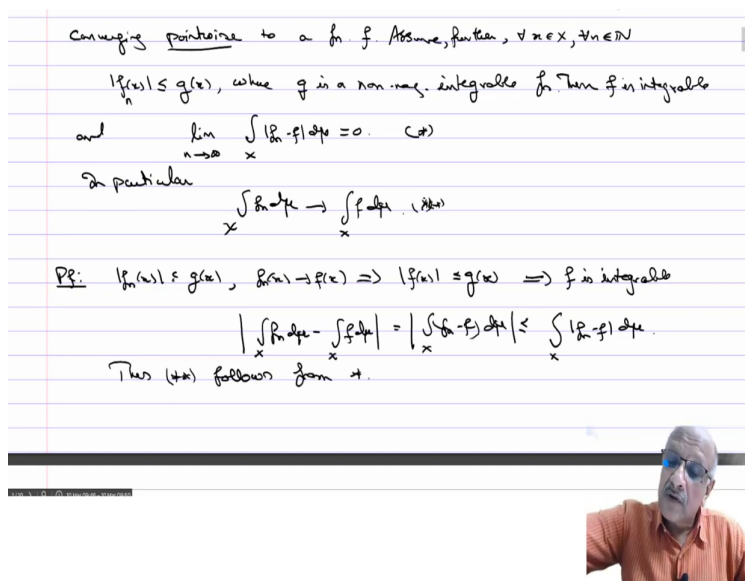 converging pointwise to a fn. f. Assume, further, ∀ x∈X, ∀n∈ℕ
|fₙ(x)| ≤ g(x), where g is a non-neg. integrable fn. Then f is integrable
and lim_{n→∞} ∫_X |fₙ-f| dμ = 0. (*)
In particular
∫_X fₙ dμ → ∫_X f dμ. (**)
Pf: |fₙ(x)| ≤ g(x), fₙ(x) → f(x) ⇒ |f(x)| ≤ g(x) ⇒ f is integrable
|∫_X fₙ dμ - ∫_X f dμ| = |∫_X (fₙ-f) dμ| ≤ ∫_X |fₙ-f| dμ.
Thus (**) follows from *.